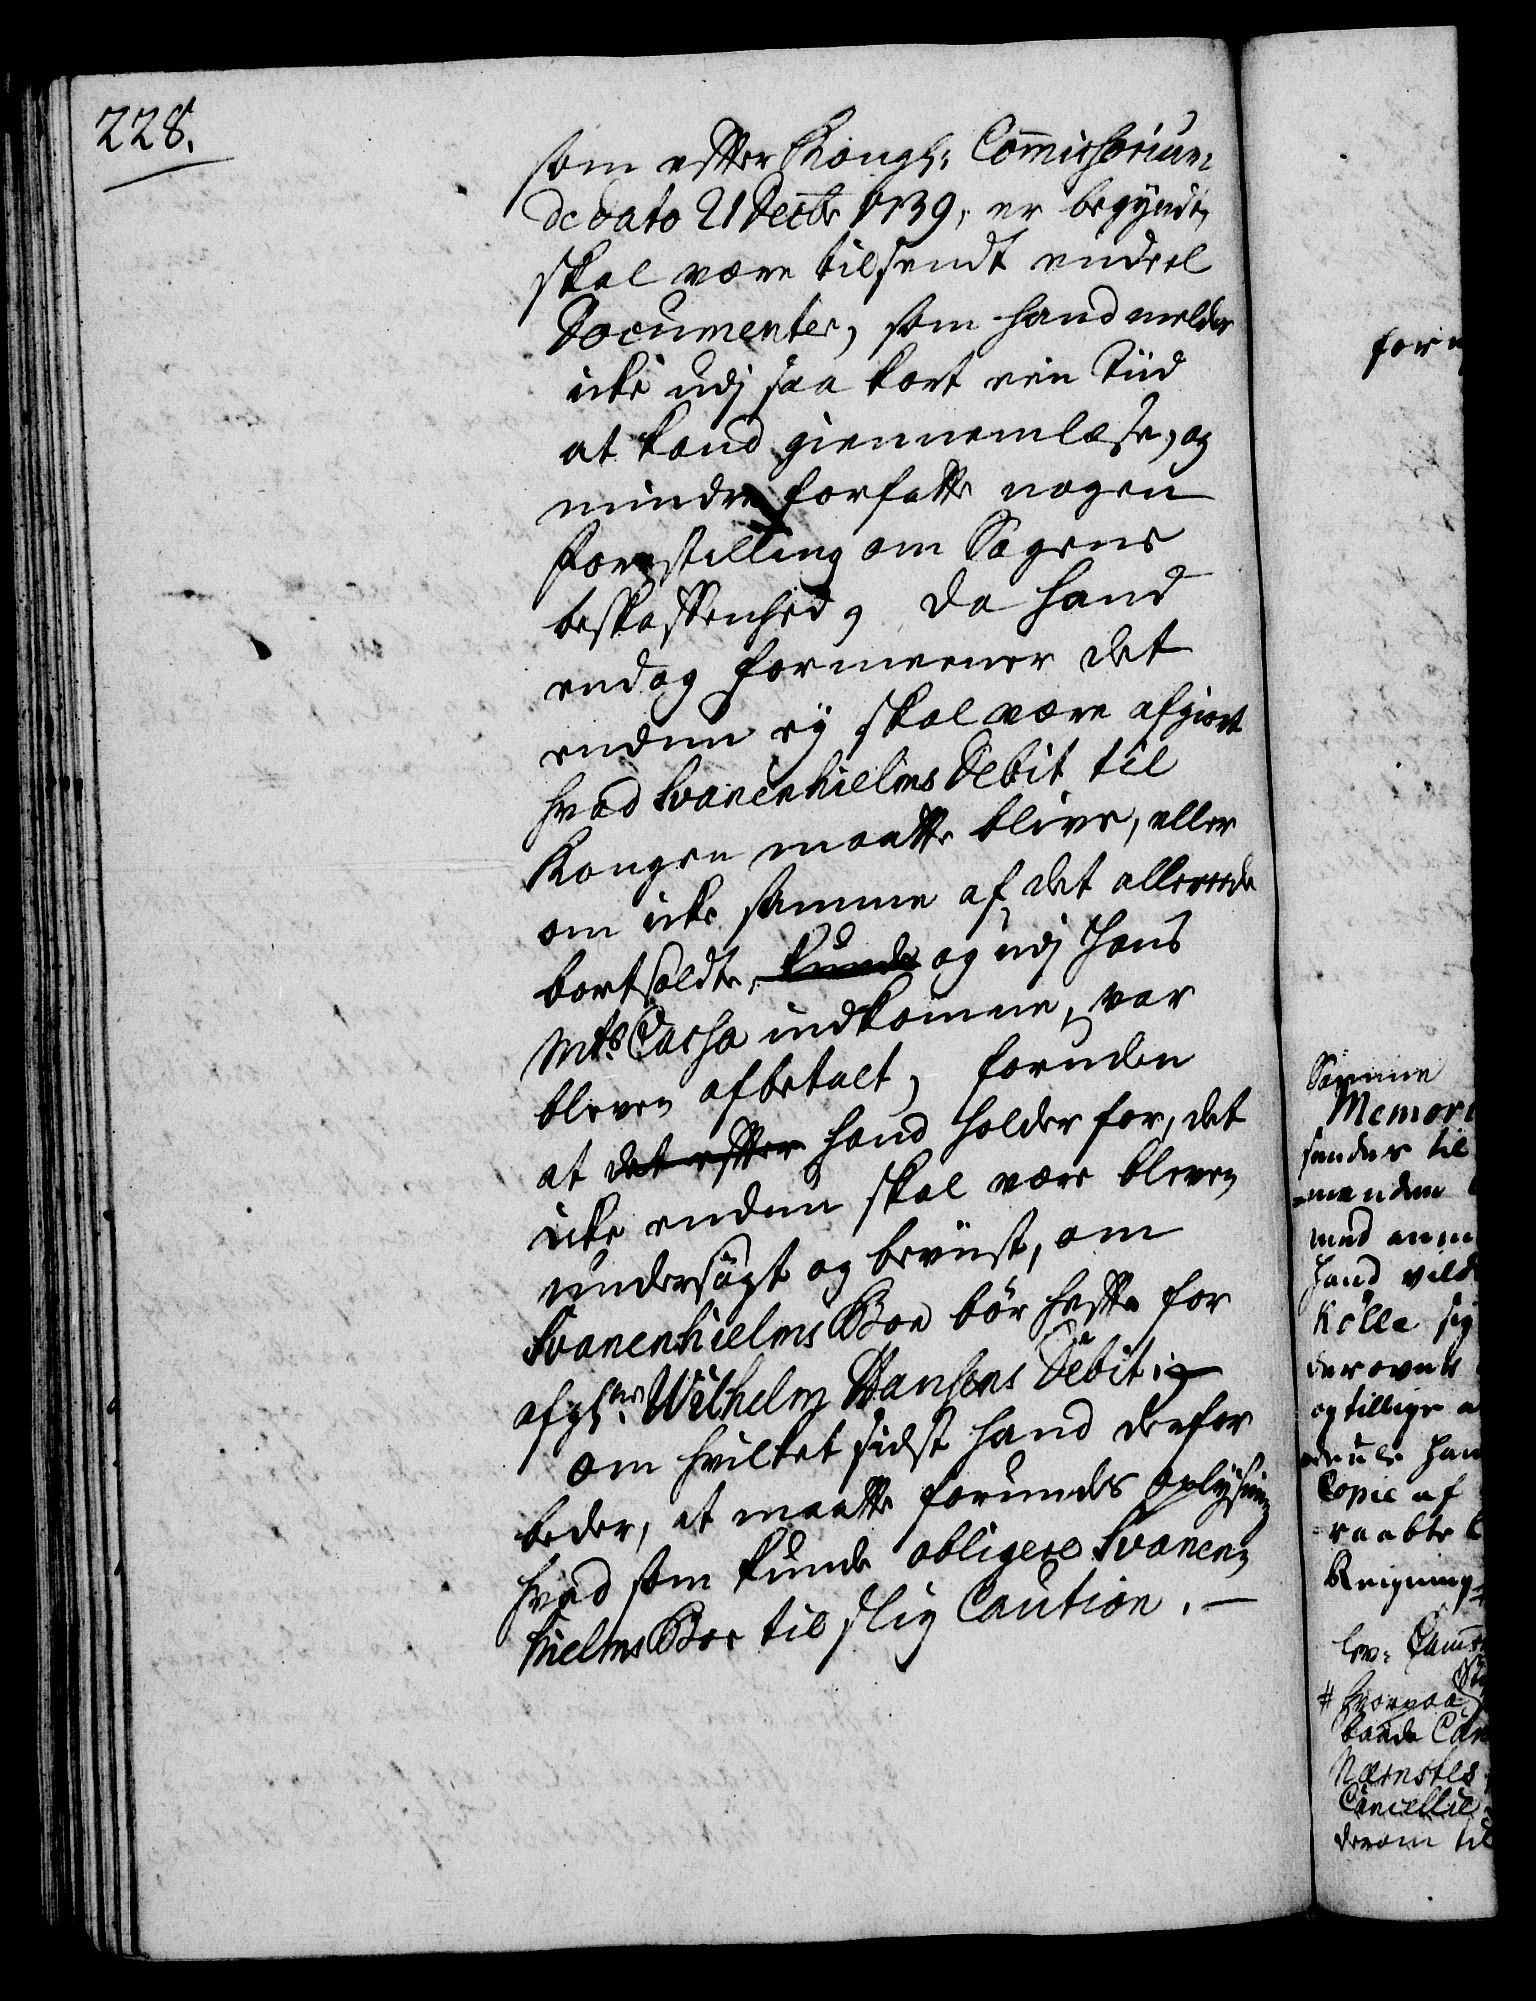 228.
som efter Kongl: Commissorium
de dato 21 Decbr 1739, er begyndt,
skal være tilsendt endeel
Documenter, som hand melder
icke udj saa kort een Tiid
at kand giennemlæse, og
mindre forfatte nogen
forestilling om Sagens
beskaffenhed, da hand
endog formeener det
endnu ey skal være afgiort
hvad Svanenhielms Debit til
Kongen maatte blive, eller
om icke samme af det allereede
bortsoldte, kunde og udj Hans
Mts: Cassa indkomne, var
bleven afbetalt, foruden
at det efter hand holder for, det
icke endnu skal være bleven
undersøgt og beviist, om
Svanenhielms Boe bör hefte for
afg: Wilhelm Hansens Debit;
om hvilket sidst hand derfor
beder, at maatte forundes oplysning
hvad som kunde obligere Svanen-
hielms Boe til slig Caution.
for
Samme
Memori
sendes til
menden
med anm
hand vild
Kølle sig
derover
og tillige
Copie af
raabte
Reigning
lev: Cam
# hvorpaa
baade Can
Nærnstes
Cancellie
derom til